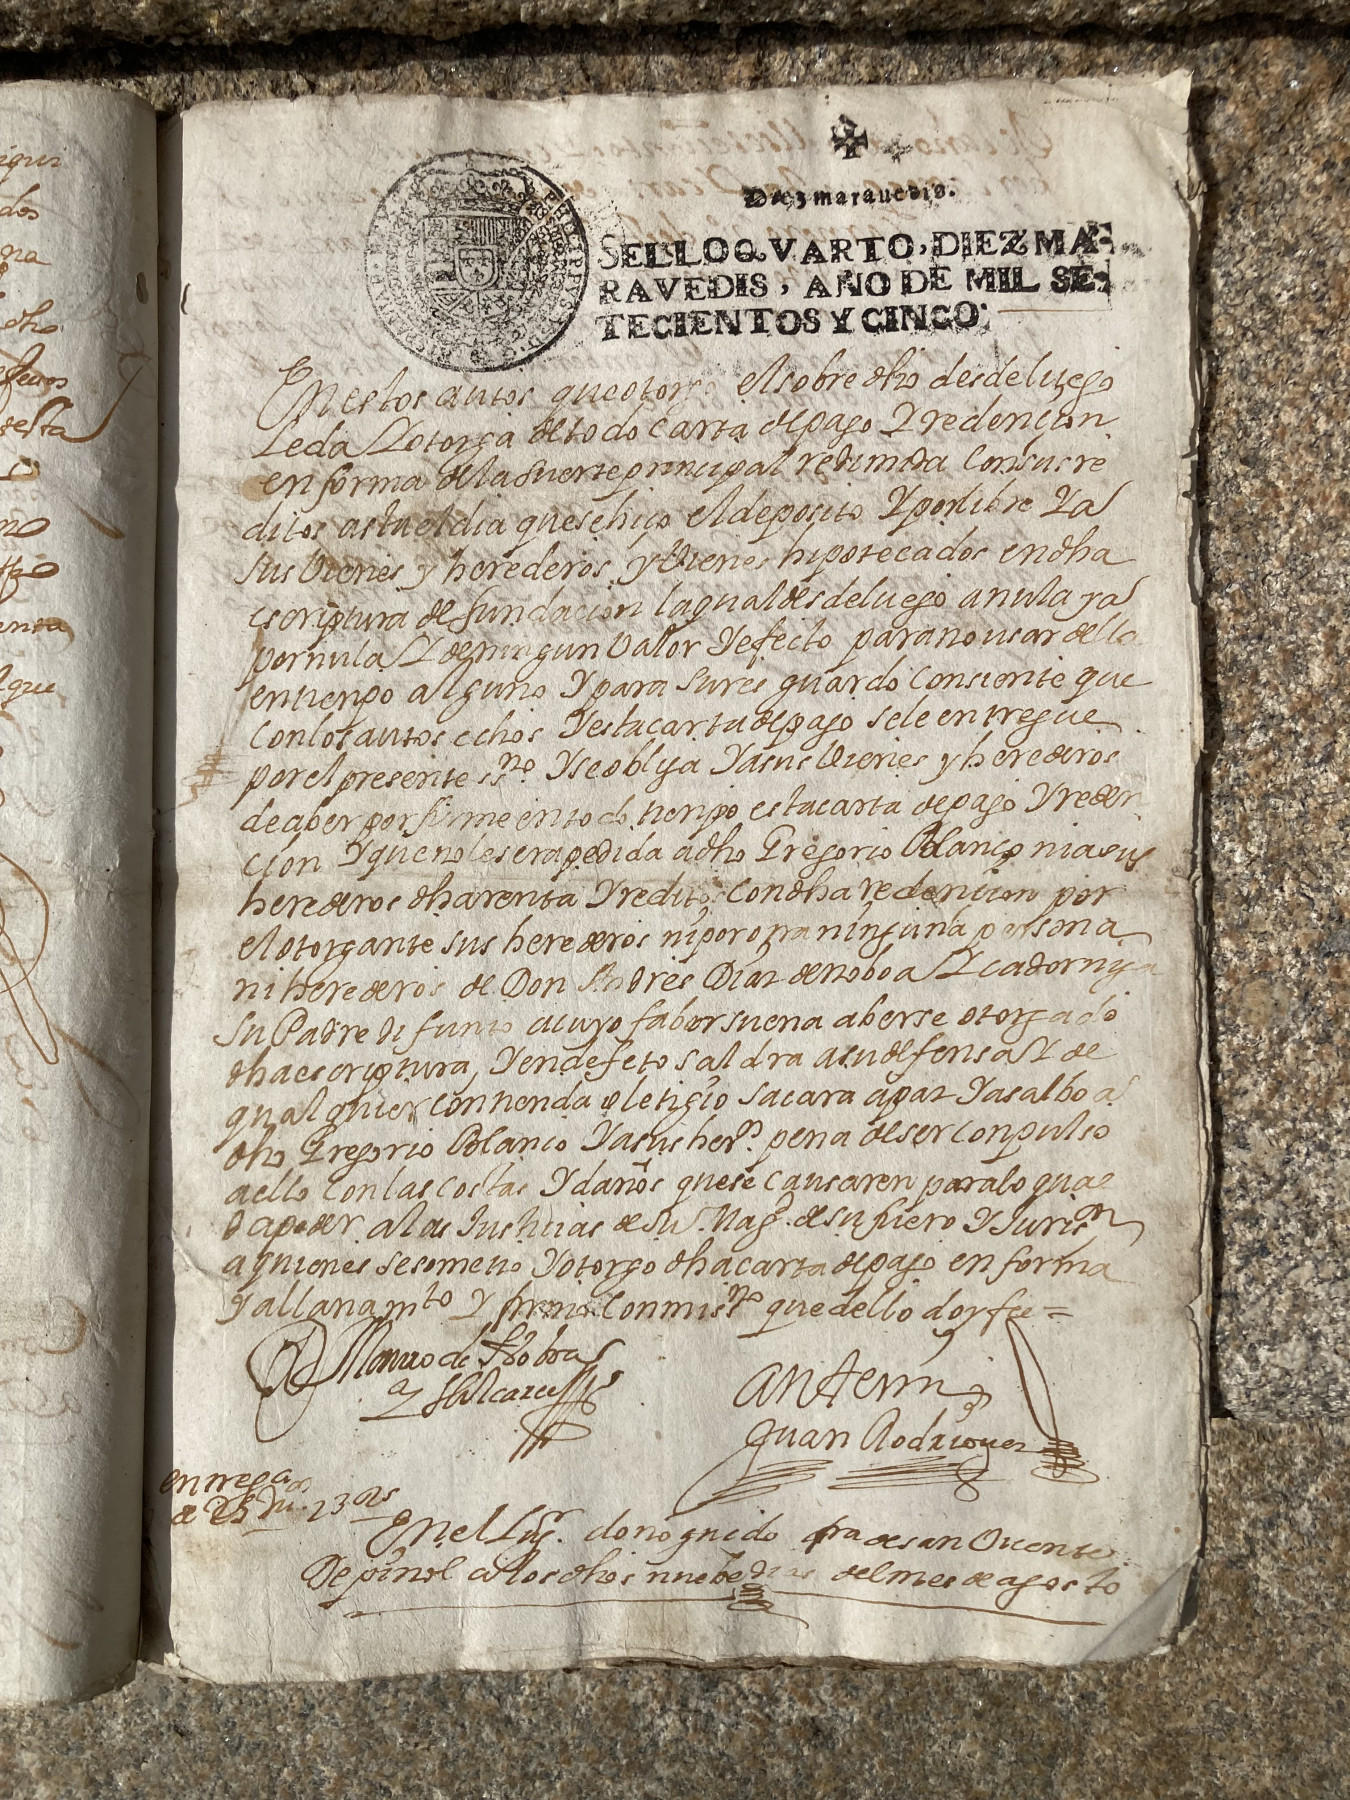 Diez marauedis.
SELLO QVARTO, DIEZ MA-
RAVEDIS, AÑO DE MIL SE-
TECIENTOS Y CINCO.
En estos autos que otorgo el sobre dho desde luego
Leda Y otorga de todo carta de pago Y redencion
en forma de la suerte principal redimida Con sus re
ditos asta el dia que se hiço el deposito Y por libre Y a
sus vienes y herederos y vienes hipotecados en dha
escriptura de fundacion la qual desde luego anula y a
por nula Y de ningun valor Y efecto para no usar della
en tienpo alguno Y para su res guardo Consiente que
Con los autos echos Y esta carta de pago se le entregue
por el presente ssno. Y se obliga Y a sus vienes y herederos
de aber por firme en todo tienpo esta carta de pago Y reden
cion Y que no le sera pedida a dho Gregorio Blanco ni a sus
herederos dha renta Y reditos Con dha redencion por
el otorgante sus herederos ni por otra ninguna persona
ni herederos de Don Andres Diaz de noboa Y cadorniga
su Padre difunto a cuyo fabor suena aberse otorgado
dha escriptura, Y en defeto saldra a su defensa Y de
qualquier contienda o letigio sacara a paz Y a salbo a
dho Gregorio Blanco Y a sus hers. pena de ser conpulso
a ello con las costas Y daños que se causaren para lo qual
da poder a las Justicias de su Magd. de su fuero Y Jurisn
a quienes se sometio Y otorgo dha carta de pago en forma
Y allanamto Y firmo Con mi ssno que dello doy fee =
de Noboa
Ante mi
Juan Rodriguez
entrega
En el Lugr. do noguido fra de san Vicente
De pinol a los dhos nuebe dias del mes de agosto